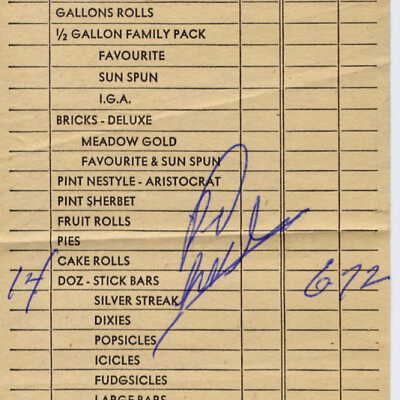 GALLONS ROLLS
½ GALLON FAMILY PACK
FAVOURITE
SUN SPUN
I.G.A.
BRICKS - DELUXE
MEADOW GOLD
FAVOURITE & SUN SPUN
PINT NESTYLE - ARISTOCRAT
PINT SHERBET
FRUIT ROLLS
PIES
CAKE ROLLS
14 DOZ - STICK BARS 6 72
SILVER STREAK
DIXIES
POPSICLES
ICICLES
FUDGSICLES
LARGE BARS